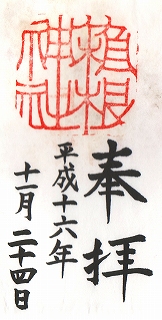 箱根神社
奉拝
平成十六年
十一月二十四日